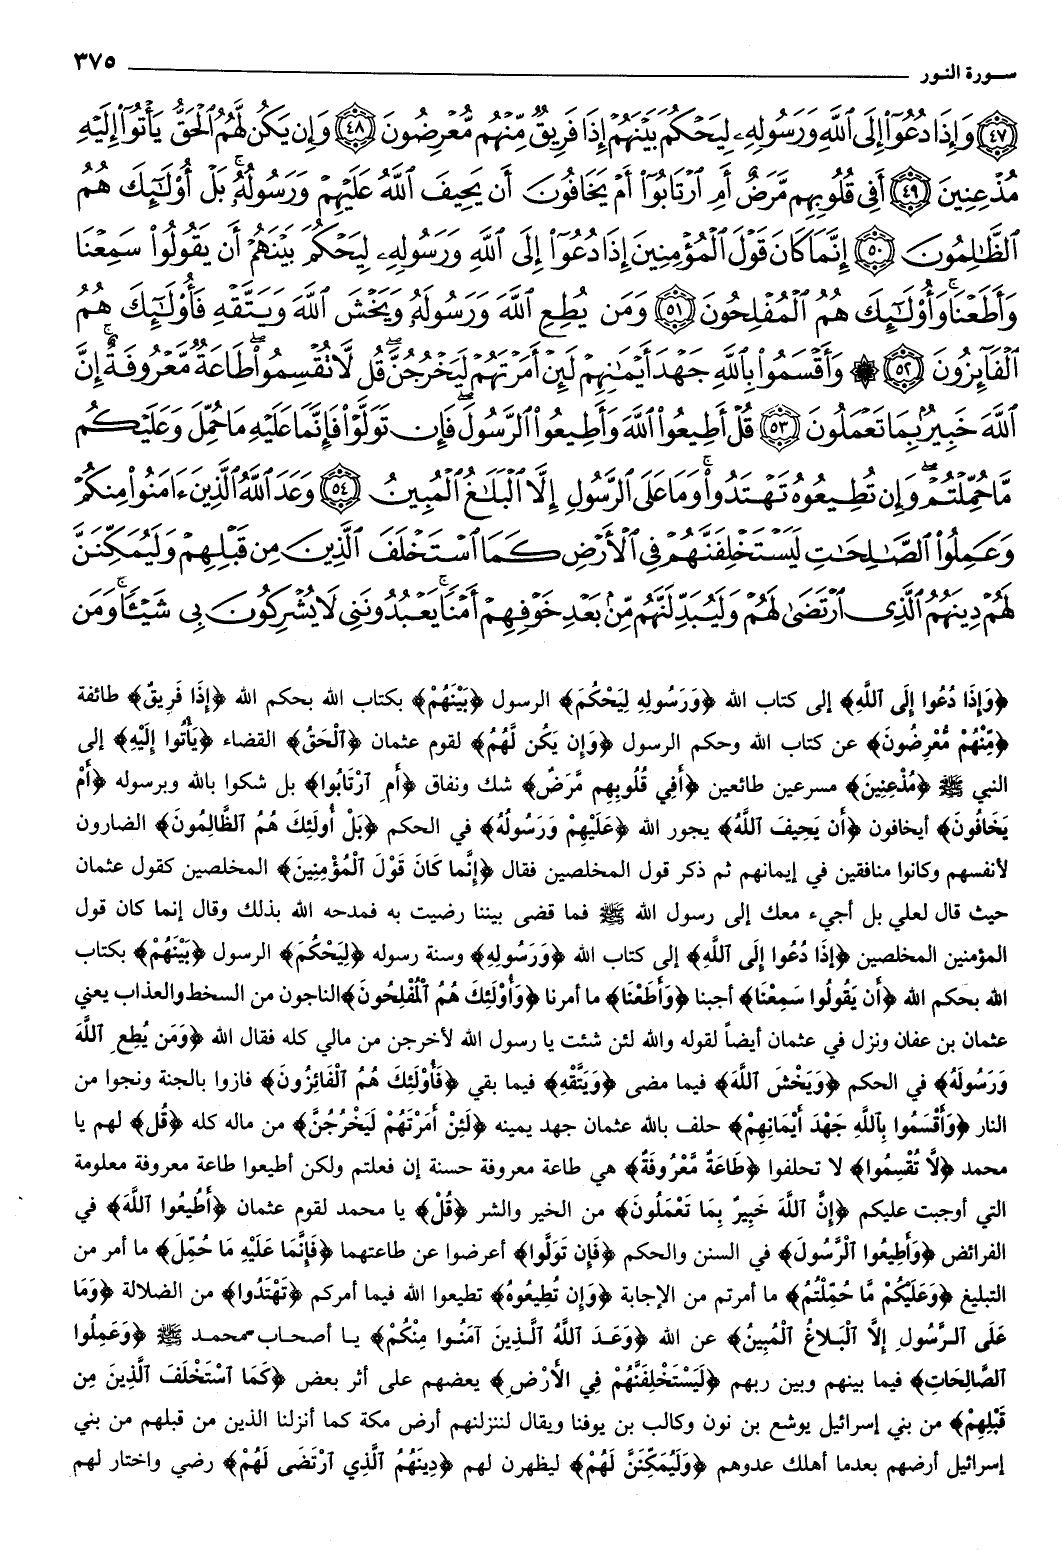 سورة النور ٣٧٥
﴿٤٧﴾ وَإِذَا دُعُوٓاْ إِلَى ٱللَّهِ وَرَسُولِهِۦ لِيَحۡكُمَ بَيۡنَهُمۡ إِذَا فَرِيقٞ مِّنۡهُم مُّعۡرِضُونَ ﴿٤٨﴾ وَإِن يَكُن لَّهُمُ ٱلۡحَقُّ يَأۡتُوٓاْ إِلَيۡهِ
مُذۡعِنِينَ ﴿٤٩﴾ أَفِي قُلُوبِهِم مَّرَضٌ أَمِ ٱرۡتَابُوٓاْ أَمۡ يَخَافُونَ أَن يَحِيفَ ٱللَّهُ عَلَيۡهِمۡ وَرَسُولُهُۥۚ بَلۡ أُوْلَٰٓئِكَ هُمُ
ٱلظَّٰلِمُونَ ﴿٥٠﴾ إِنَّمَا كَانَ قَوۡلَ ٱلۡمُؤۡمِنِينَ إِذَا دُعُوٓاْ إِلَى ٱللَّهِ وَرَسُولِهِۦ لِيَحۡكُمَ بَيۡنَهُمۡ أَن يَقُولُواْ سَمِعۡنَا
وَأَطَعۡنَاۚ وَأُوْلَٰٓئِكَ هُمُ ٱلۡمُفۡلِحُونَ ﴿٥١﴾ وَمَن يُطِعِ ٱللَّهَ وَرَسُولَهُۥ وَيَخۡشَ ٱللَّهَ وَيَتَّقۡهِ فَأُوْلَٰٓئِكَ هُمُ
ٱلۡفَآئِزُونَ ﴿٥٢﴾ ۞ وَأَقۡسَمُواْ بِٱللَّهِ جَهۡدَ أَيۡمَٰنِهِمۡ لَئِنۡ أَمَرۡتَهُمۡ لَيَخۡرُجُنَّۖ قُل لَّا تُقۡسِمُواْۖ طَاعَةٞ مَّعۡرُوفَةٌۚ إِنَّ
ٱللَّهَ خَبِيرُۢ بِمَا تَعۡمَلُونَ ﴿٥٣﴾ قُلۡ أَطِيعُواْ ٱللَّهَ وَأَطِيعُواْ ٱلرَّسُولَۖ فَإِن تَوَلَّوۡاْ فَإِنَّمَا عَلَيۡهِ مَا حُمِّلَ وَعَلَيۡكُم
مَّا حُمِّلۡتُمۡۖ وَإِن تُطِيعُوهُ تَهۡتَدُواْۚ وَمَا عَلَى ٱلرَّسُولِ إِلَّا ٱلۡبَلَٰغُ ٱلۡمُبِينُ ﴿٥٤﴾ وَعَدَ ٱللَّهُ ٱلَّذِينَ ءَامَنُواْ مِنكُمۡ
وَعَمِلُواْ ٱلصَّٰلِحَٰتِ لَيَسۡتَخۡلِفَنَّهُمۡ فِي ٱلۡأَرۡضِ كَمَا ٱسۡتَخۡلَفَ ٱلَّذِينَ مِن قَبۡلِهِمۡ وَلَيُمَكِّنَنَّ
لَهُمۡ دِينَهُمُ ٱلَّذِي ٱرۡتَضَىٰ لَهُمۡ وَلَيُبَدِّلَنَّهُم مِّنۢ بَعۡدِ خَوۡفِهِمۡ أَمۡنٗاۚ يَعۡبُدُونَنِي لَا يُشۡرِكُونَ بِي شَيۡـٔٗاۚ وَمَن
﴿وَإِذَا دُعُوا إِلَى ٱللَّهِ﴾ إلى كتاب الله ﴿وَرَسُولِهِ لِيَحْكُمَ﴾ الرسول ﴿بَيْنَهُمْ﴾ بكتاب الله بحكم الله ﴿إِذَا فَرِيقٌ﴾ طائفة
﴿مِّنْهُمْ مُّعْرِضُونَ﴾ عن كتاب الله وحكم الرسول ﴿وَإِن يَكُن لَّهُمُ﴾ لقوم عثمان ﴿ٱلْحَقُّ﴾ القضاء ﴿يَأْتُوا إِلَيْهِ﴾ إلى
النبي ﷺ ﴿مُذْعِنِينَ﴾ مسرعين طائعين ﴿أَفِي قُلُوبِهِم مَّرَضٌ﴾ شك ونفاق ﴿أَمِ ٱرْتَابُوا﴾ بل شكوا بالله وبرسوله ﴿أَمْ
يَخَافُونَ﴾ أيخافون ﴿أَن يَحِيفَ ٱللَّهُ﴾ يجور الله ﴿عَلَيْهِمْ وَرَسُولُهُ﴾ في الحكم ﴿بَلْ أُولَئِكَ هُمُ ٱلظَّالِمُونَ﴾ الضارون
لأنفسهم وكانوا منافقين في إيمانهم ثم ذكر قول المخلصين فقال ﴿إِنَّما كَانَ قَوْلَ ٱلْمُؤْمِنِينَ﴾ المخلصين كقول عثمان
حيث قال لعلي بل أجيء معك إلى رسول الله ﷺ فما قضى بيننا رضيت به فمدحه الله بذلك وقال إنما كان قول
المؤمنين المخلصين ﴿إِذَا دُعُوا إِلَى ٱللَّهِ﴾ إلى كتاب الله ﴿وَرَسُولِهِ﴾ وسنة رسوله ﴿لِيَحْكُمَ﴾ الرسول ﴿بَيْنَهُمْ﴾ بكتاب
الله بحكم الله ﴿أَن يَقُولُوا سَمِعْنَا﴾ أجبنا ﴿وَأَطَعْنَا﴾ ما أمرنا ﴿وَأُوْلَئِكَ هُمُ ٱلْمُفْلِحُونَ﴾ الناجون من السخط والعذاب يعني
عثمان بن عفان ونزل في عثمان أيضاً لقوله والله لئن شئت يا رسول الله لأخرجن من مالي كله فقال الله ﴿وَمَن يُطِعِ ٱللَّهَ
وَرَسُولَهُ﴾ في الحكم ﴿وَيَخْشَ ٱللَّهَ﴾ فيما مضى ﴿وَيَتَّقْهِ﴾ فيما بقي ﴿فَأُوْلَئِكَ هُمُ ٱلْفَائِزُونَ﴾ فازوا بالجنة ونجوا من
النار ﴿وَأَقْسَمُوا بِٱللَّهِ جَهْدَ أَيْمَانِهِمْ﴾ حلف بالله عثمان جهد يمينه ﴿لَئِنْ أَمَرْتَهُمْ لَيَخْرُجُنَّ﴾ من ماله كله ﴿قُل﴾ لهم يا
محمد ﴿لَّا تُقْسِمُوا﴾ لا تحلفوا ﴿طَاعَةٌ مَّعْرُوفَةٌ﴾ هي طاعة معروفة حسنة إن فعلتم ولكن أطيعوا طاعة معروفة معلومة
التي أوجبت عليكم ﴿إِنَّ ٱللَّهَ خَبِيرٌ بِمَا تَعْمَلُونَ﴾ من الخير والشر ﴿قُلْ﴾ يا محمد لقوم عثمان ﴿أَطِيعُوا ٱللَّهَ﴾ في
الفرائض ﴿وَأَطِيعُوا ٱلْرَّسُولَ﴾ في السنن والحكم ﴿فَإِن تَوَلَّوا﴾ أعرضوا عن طاعتهما ﴿فَإِنَّمَا عَلَيْهِ مَا حُمِّلَ﴾ ما أمر من
التبليغ ﴿وَعَلَيْكُمْ مَّا حُمِّلْتُمُ﴾ ما أمرتم من الإجابة ﴿وَإِن تُطِيعُوهُ﴾ تطيعوا الله فيما أمركم ﴿تَهْتَدُوا﴾ من الضلالة ﴿وَمَا
عَلَى ٱلرَّسُولِ إِلَّا ٱلْبَلاغُ ٱلْمُبِينُ﴾ عن الله ﴿وَعَدَ ٱللَّهُ ٱلَّذِينَ آمَنُوا مِنْكُمْ﴾ يا أصحاب محمد ﷺ ﴿وَعَمِلُوا
ٱلصَّالِحَاتِ﴾ فيما بينهم وبين ربهم ﴿لَيَسْتَخْلِفَنَّهُمْ فِي ٱلأَرْضِ﴾ يعضهم على أثر بعض ﴿كَمَا ٱسْتَخْلَفَ ٱلَّذِينَ مِن
قَبْلِهِمْ﴾ من بني إسرائيل يوشع بن نون وكالب بن يوفنا ويقال لننزلنهم أرض مكة كما أنزلنا الذين من قبلهم من بني
إسرائيل أرضهم بعدما أهلك عدوهم ﴿وَلَيُمَكِّنَنَّ لَهُمْ﴾ ليظهرن لهم ﴿دِينَهُمُ ٱلَّذِي ٱرْتَضَى لَهُمْ﴾ رضي واختار لهم